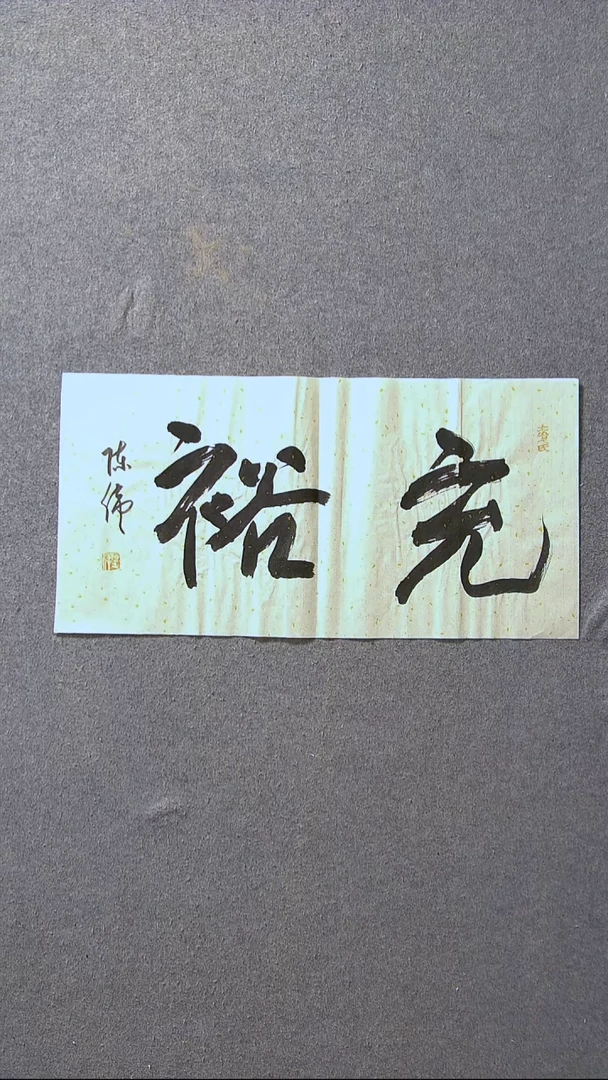 充裕
陈伟